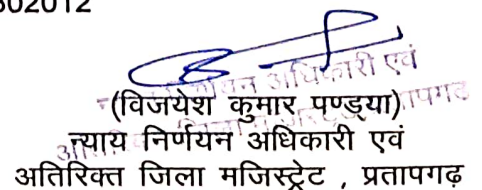 302012
(विजयेश कुमार पण्ड्या)
न्याय निर्णयन अधिकारी एवं
अतिरिक्त जिला मजिस्ट्रेट , प्रतापगढ़